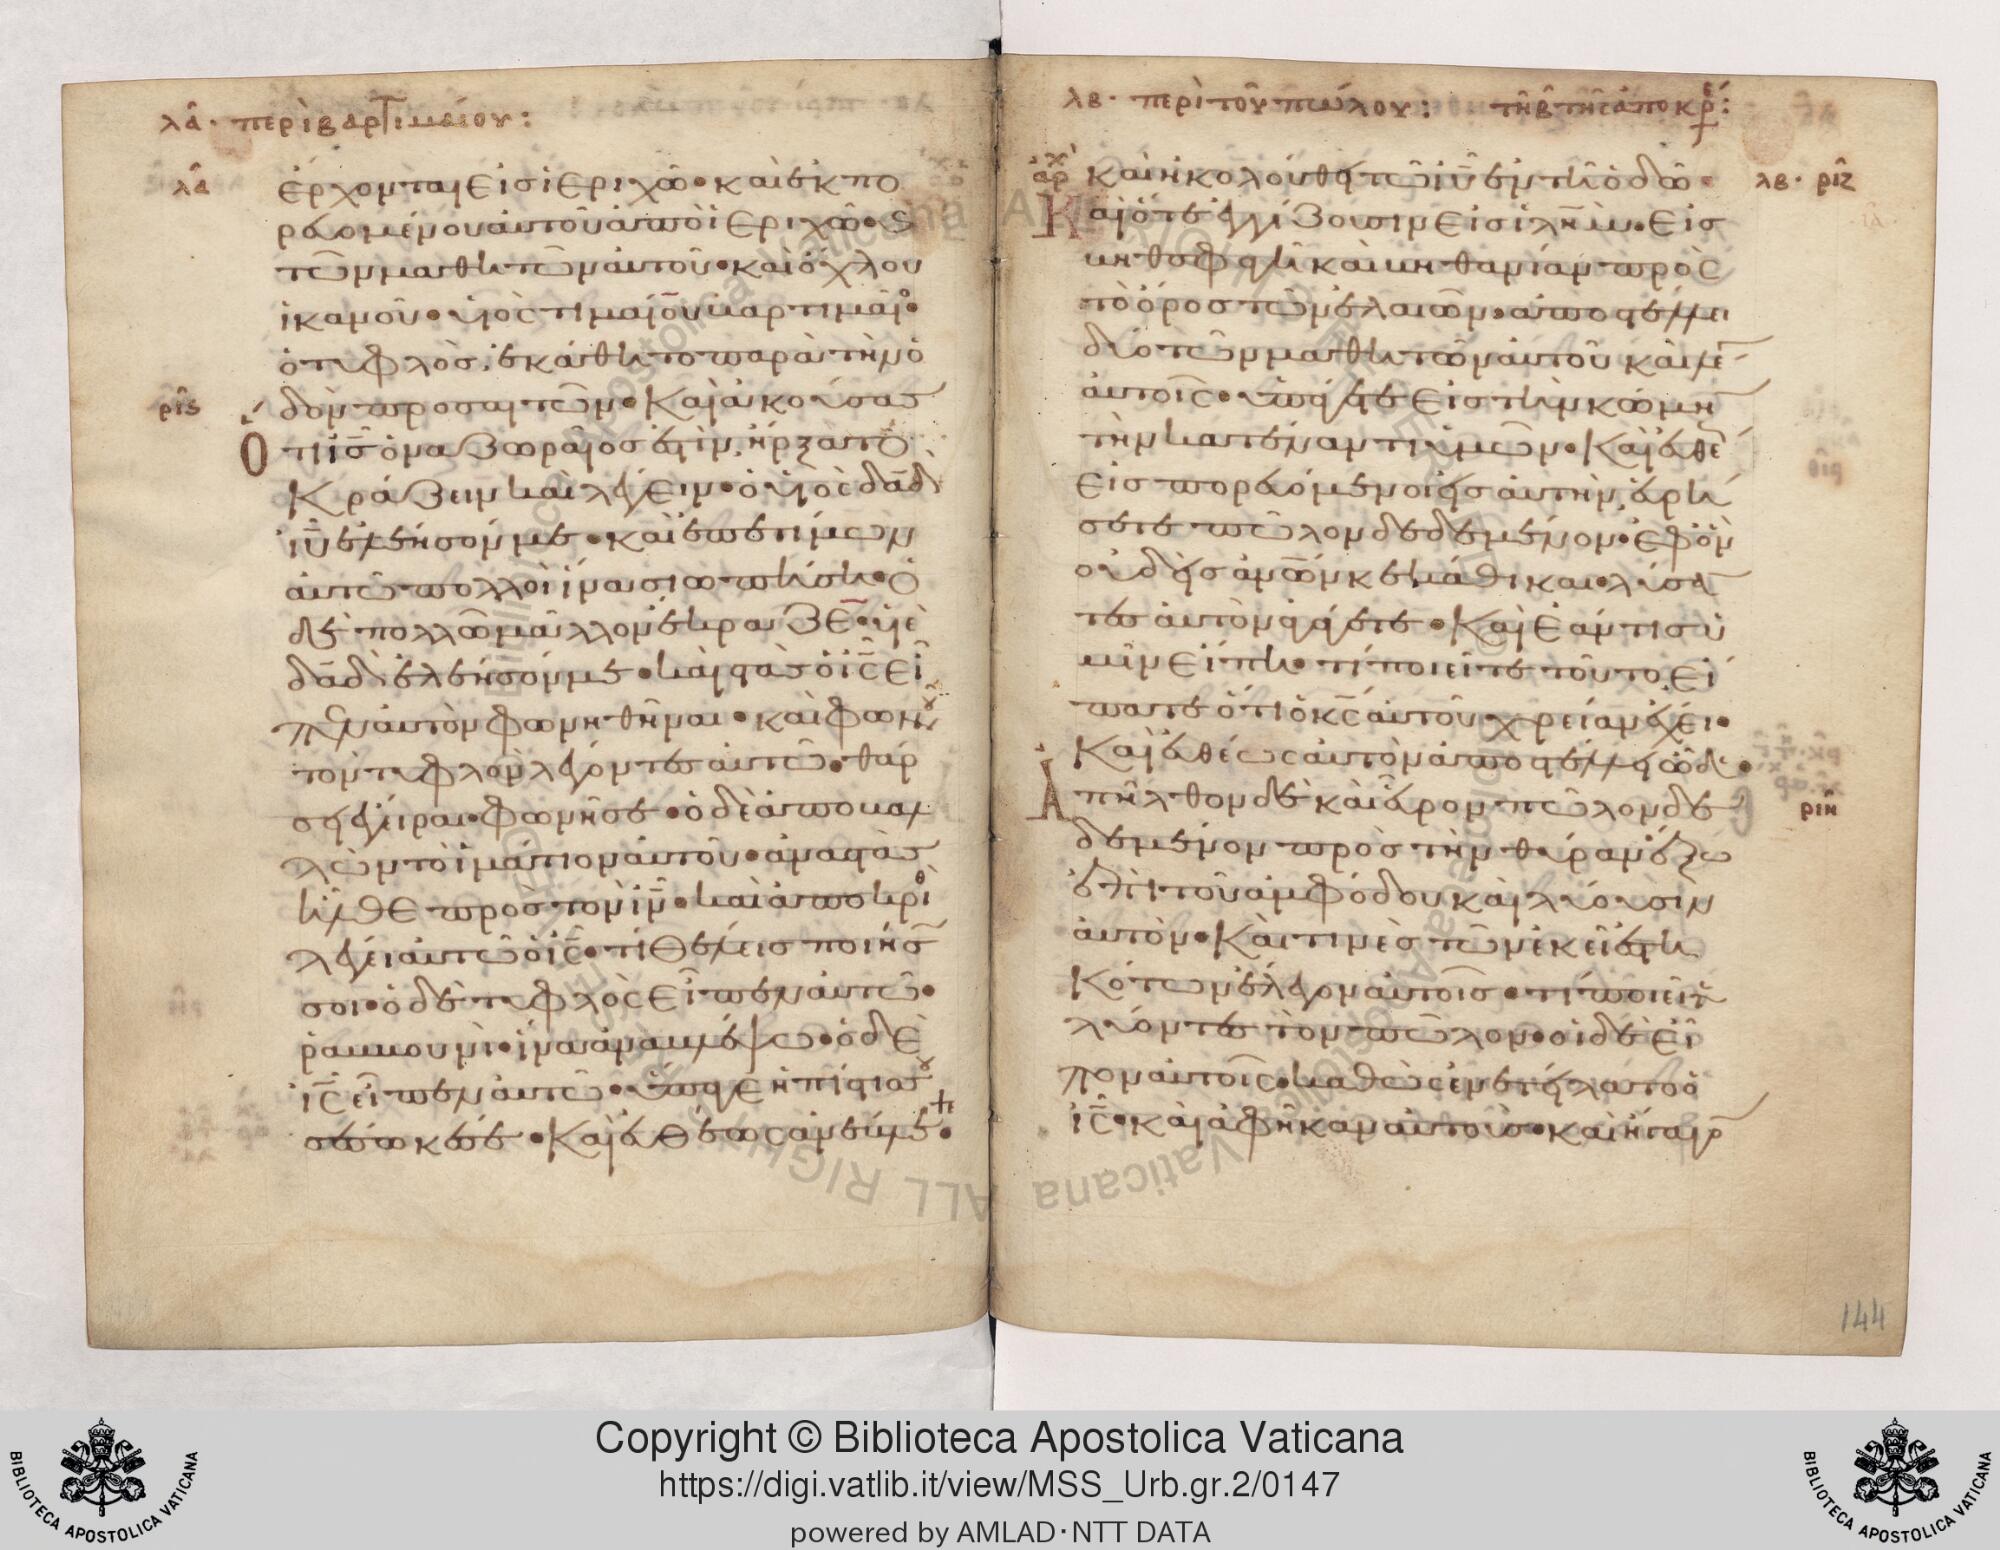 λα· περὶ βαρτιμαίου:
λα
ἔρχονται εἰς ἱεριχῶ· καὶ ἐκπο
ρευομένου αὐτοῦ ἀπὸ ἱεριχῶ· καὶ
τῶν μαθητῶν αὐτοῦ· καὶ ὄχλου
ἱκανοῦ· υἱὸς τιμαίου βαρτιμαῖος
ὁ τυφλὸς, ἐκάθητο παρὰ τὴν ὁ
ριϛ
δὸν προσαιτῶν· Καὶ ἀκούσας
ὅτι ις ὁ ναζωραῖός ἐστιν, ἤρξατο
Κράζειν καὶ λέγειν· ὁ υἱὸς δαδ
ιυ ἐλέησόν με· καὶ ἐπετίμων
αὐτῷ πολλοὶ ἵνα σιωπήση· ὁ
δὲ πολλῶ μᾶλλον ἔκραζεν· υἱὲ
δαδ ἐλέησόν με· καὶ στὰς ὁ ις εἶ
πεν αὐτὸν φωνηθῆναι· καὶ φωνοῦ
τὸν τυφλὸν λέγοντες αὐτῶ· θάρ
σει ἔγειραι· φωνεῖ σε· ὁ δὲ ἀποβα
λὼν τὸ ἱμάτιον αὐτοῦ· ἀναστὰς
ἦλθε πρὸς τὸν ιν· καὶ ἀποκριθ
λέγει αὐτῶ ὁ ις· τί θέλεις ποιήσ
σοι· ὁ δὲ τυφλὸς εἶπεν αὐτῶ·
ῥαββουνὶ· ἵνα ἀναβλέψω· ὁ δὲ
ις εἶπεν αὐτῶ· ὕπαγε ἡ πίστις σου
σέσωκέ σε· Καὶ εὐθέως ἀνέβλεψε·
λβ· περὶ τοῦ πώλου:
ἀρχ
καὶ ἠκολούθει τῶ ιυ ἐν τῆ ὁδῶ·
λβ· ριζ
Καὶ ὅτε ἐγγίζουσιν εἰς ιλημ· εἰς
βηθσφαγὴ καὶ βηθανίαν πρὸς
τὸ ὄρος τῶν ἐλαιῶν· ἀποστέλλει
δύο τῶν μαθητῶν αὐτοῦ καὶ λέγ
αὐτοῖς· ὑπάγετε εἰς τὴν κώμην
τὴν κατέναντι ὑμῶν· Καὶ εὐθέ
εἰσπορευόμενοι εἰς αὐτὴν, εὑρή
σετε πῶλον δεδεμένον· ἐφ' ὃν
οὐδεὶς ἀνων κεκάθικε· λύσαν
τες αὐτὸν ἀγάγετε· Καὶ ἐάν τις ὑ
μῖν εἴπη· τί ποιεῖτε τοῦτο, εἴ
πατε ὅτι ὁ κς αὐτοῦ χρείαν ἔχει·
Καὶ εὐθέως αὐτὸν ἀποστέλλει ὧδε·
ριη
Ἀπῆλθον δὲ καὶ εὗρον πῶλον δε
δεμένον πρὸς τὴν θύραν ἔξω
ἐπὶ τοῦ ἀμφόδου καὶ λύουσιν
αὐτόν· Καί τινες τῶν ἐκεῖ ἑστη
Κότων ἔλεγον αὐτοῖς· τί ποιεῖτε
λύοντες τὸν πῶλον· οἱ δὲ εἶ
πον αὐτοῖς· καθὼς ἐνετείλατο ὁ
ις· καὶ ἀφῆκαν αὐτούς· καὶ ἤγαγον
144
Copyright © Biblioteca Apostolica Vaticana
https://digi.vatlib.it/view/MSS_Urb.gr.2/0147
powered by AMLAD·NTT DATA
BIBLIOTECA APOSTOLICA VATICANA
BIBLIOTECA APOSTOLICA VATICANA